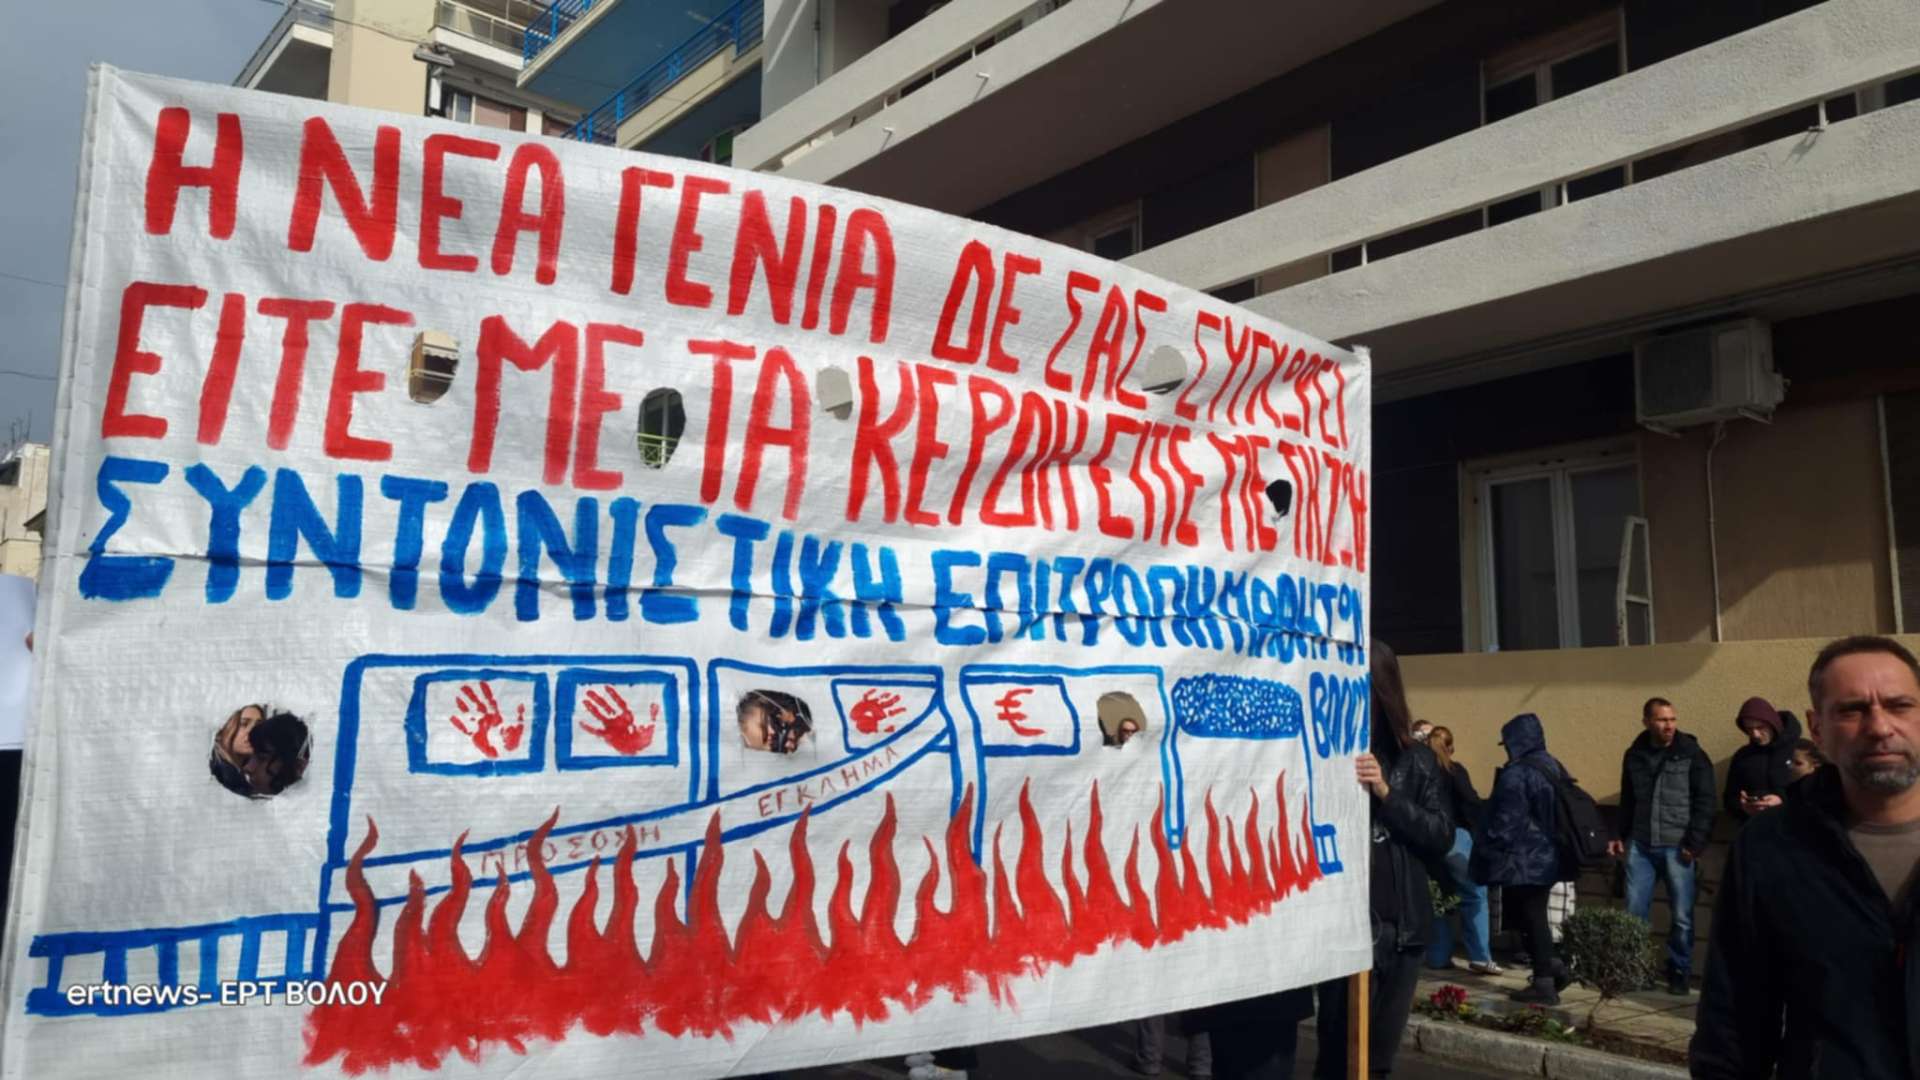 Η ΝΕΑ ΓΕΝΙΑ ΔΕ ΣΑΣ ΣΥΓΧΩΡΕΙ
ΕΙΤΕ ΜΕ ΤΑ ΚΕΡΔΗ ΕΙΤΕ ΜΕ ΤΗ ΖΩΗ
ΣΥΝΤΟΝΙΣΤΙΚΗ ΕΠΙΤΡΟΠΗ ΜΑΘΗΤΩΝ
ΒΟΛΟΥ
€
ΠΡΟΣΟΧΗ ΕΓΚΛΗΜΑ
ertnews- ΕΡΤ ΒΌΛΟΥ